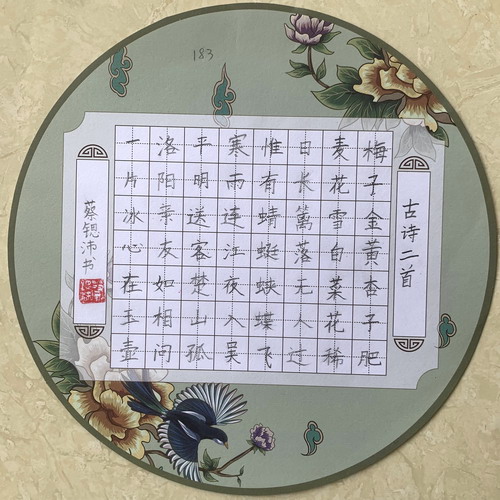 183
古诗二首
梅子金黄杏子肥
麦花雪白菜花稀
日长篱落无人过
惟有蜻蜓蛱蝶飞
寒雨连江夜入吴
平明送客楚山孤
洛阳亲友如相问
一片冰心在玉壶
蔡锶沛书